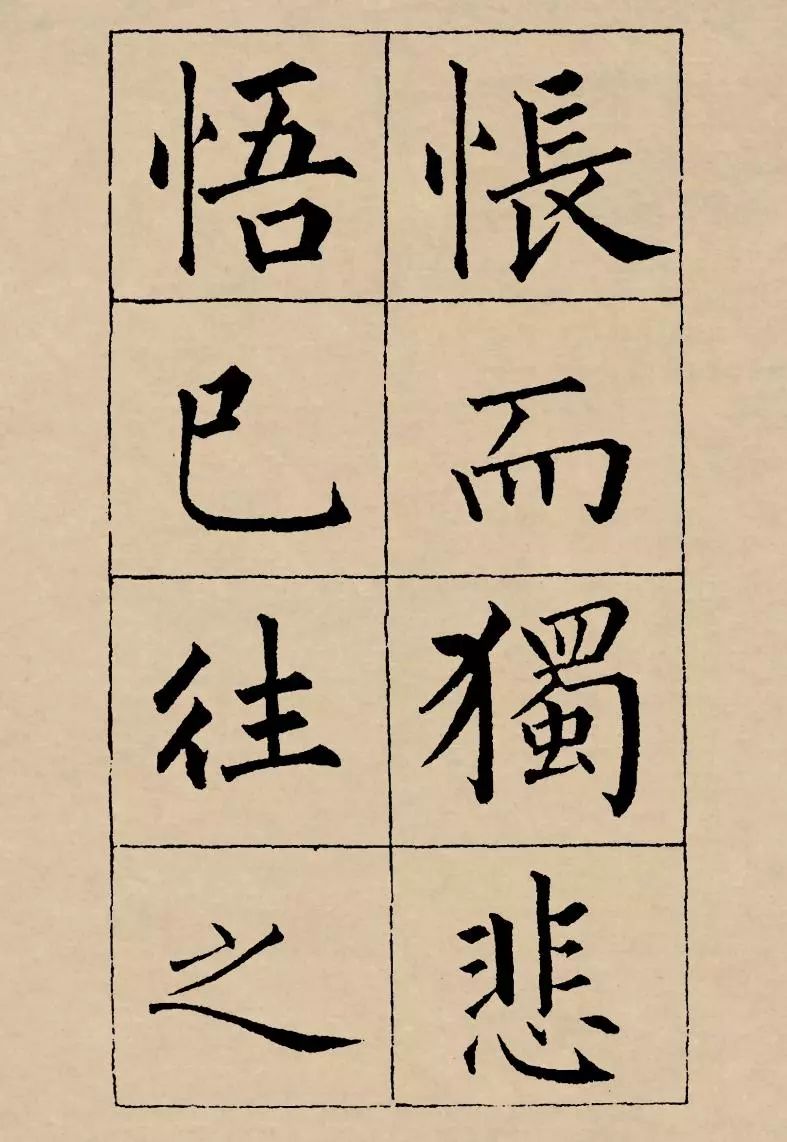 悵而獨悲
悟已往之